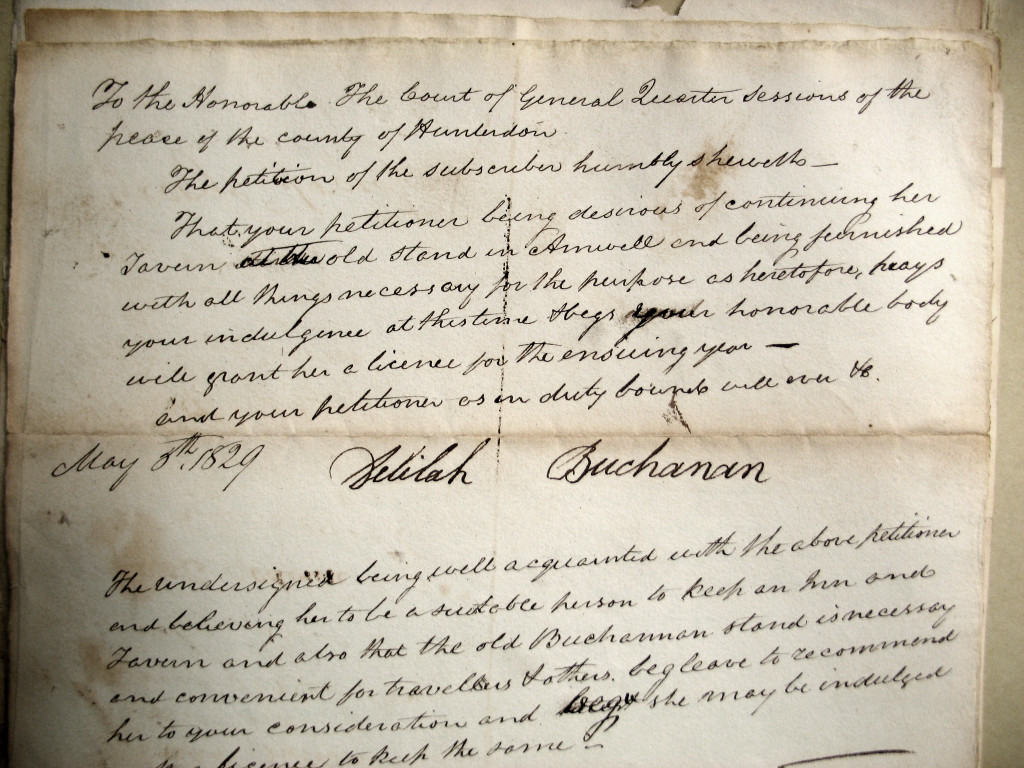 To the Honorable The Court of General Quarter Sessions of the
peace of the county of Hunterdon
The petition of the subscriber humbly sheweth —
That your petitioner being desirous of continuing her
Tavern at the old stand in Amwell and being furnished
with all things necessary for the purpose as heretofore, prays
your indulgence at this time & begs your honorable body
will grant her a licence for the ensuing year —
and your petitioner as in duty bound will ever &c.
May 8th. 1829 Delilah Buchanan
The undersigned being well acquainted with the above petitioner
and believing her to be a suitable person to keep an Inn and
Tavern and also that the old Buchannan stand is necessary
and convenient for travellers & others. beg leave to recommend
her to your consideration and begs she may be indulged
licence to keep the same —